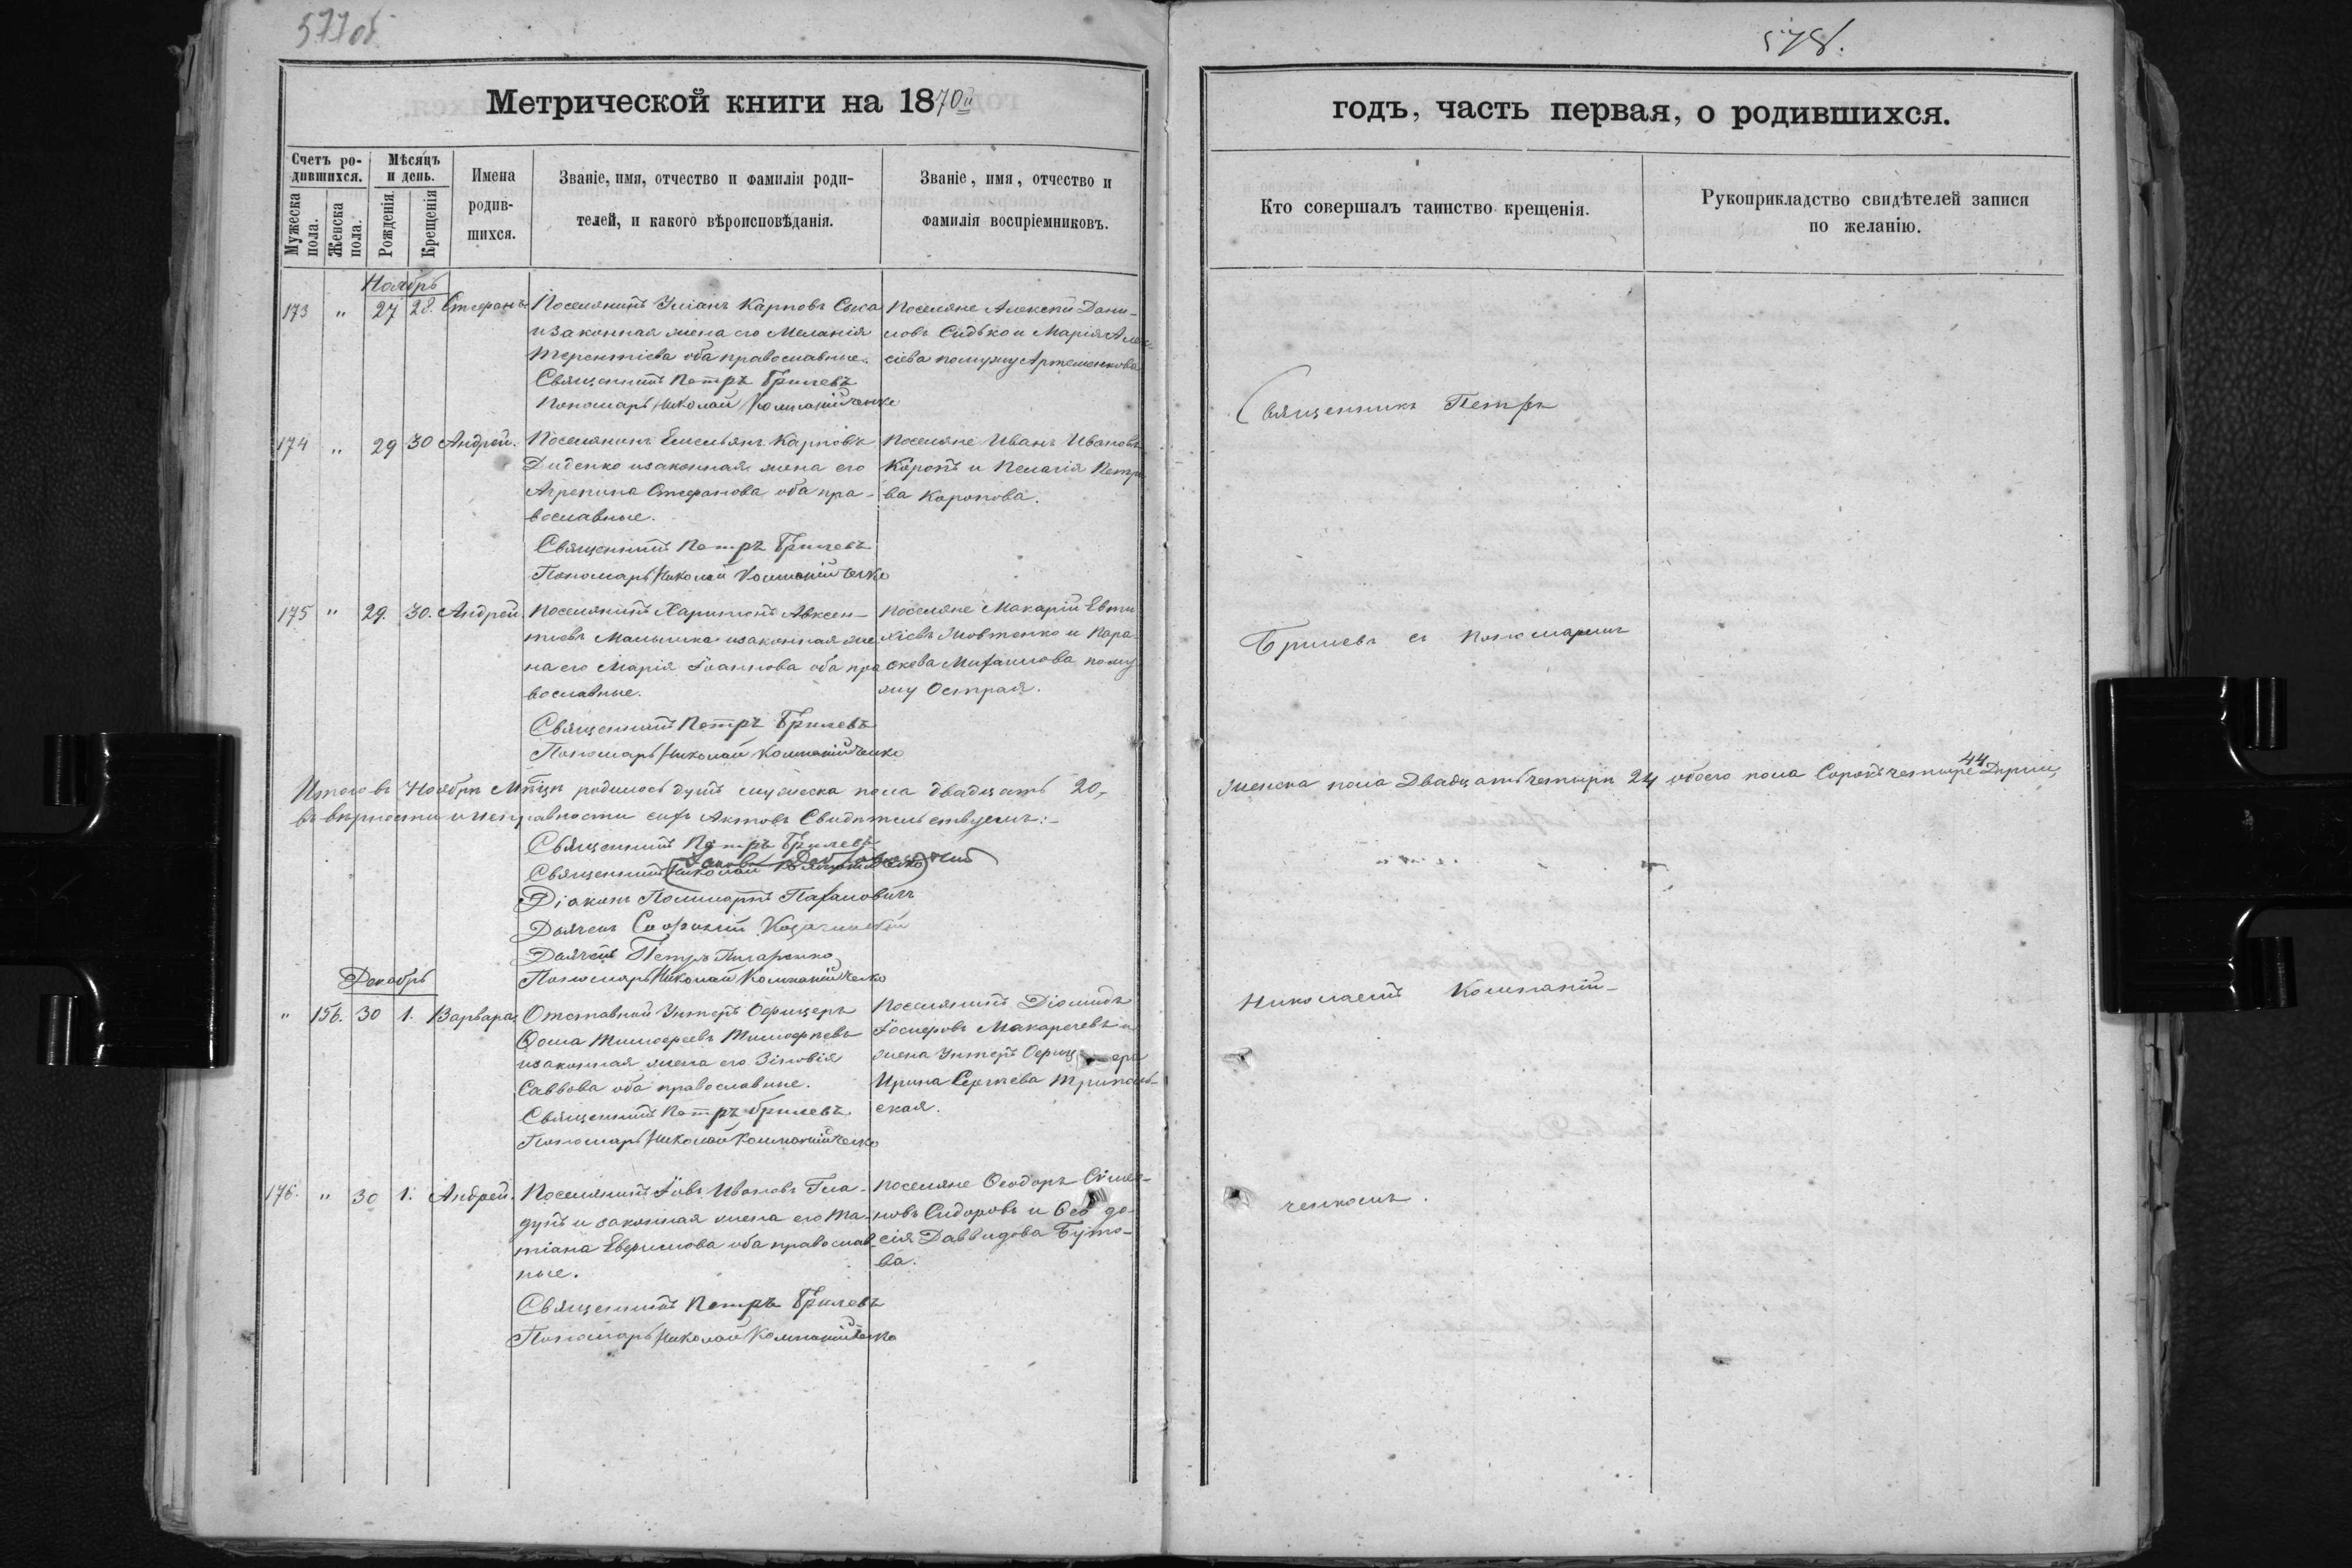 577об
578.
Метрической книги на 1870й
годъ, часть первая, о родившихся.
Счетъ ро-
дившихся.
Мужеска
пола.
Женска
пола.
Мѣсяцъ
и день.
Рожденія
Крещенія
Имена
родив-
шихся.
Званіе, имя, отчество и фамилія роди-
телей, и какого вѣроисповѣданія.
Званіе, имя, отчество и
фамилія воспріемниковъ.
Кто совершалъ таинство крещенія.
Рукоприкладство свидѣтелей записи
по желанію.
Ноябрь
173 " 27 28. Стефанъ
Поселянинъ Уліанъ Карповъ
и законная жена его Меланія
Терентіева оба православные.
Священникъ Петръ Брилевъ
Пономарь Николай Компанійченко
Поселяне Алексѣй Дани-
ловъ Сидько и Марія Алек-
сіева по мужу Артеменкова
174 " 29 30 Андрей.
Поселянинъ Емельянъ Карповъ
Диденко и законная жена его
Агрепина Стефанова оба пра-
вославные.
Священникъ Петръ Брилевъ
Пономарь Николай Компанійченко
Поселяне Иванъ Ивановъ
Коропъ и Пелагія Петро
ва Коропова.
175 " 29. 30. Андрей
Поселянинъ Харитонъ Авксен-
тіевъ Малышка и законная же
на его Марія Іоаннова оба пра
вославные.
Священникъ Петръ Брилевъ
Пономарь Николай Компанійченко
Поселяне Макарій Евти
хіевъ Жовтенко и Пара
скева Михаилова по му
жу Острая.
Итого въ Ноябрѣ Мѣсяцѣ родилось душъ мужеска пола двадцать 20,
женска пола Двадцать четыри 24 обоего пола Сорокъ четыре 44 Души,
въ вѣрности и исправности сихъ Актовъ Свидѣтельствуемъ:-
Священникъ Петръ Брилевъ
Священникъ
Діаконъ
Дьячекъ Софоній
Дьячекъ Петръ Писаренко
Пономарь Николай Компанійченко
Декабрь
" 156. 30 1. Варвара
Отставной Унтеръ Офицеръ
Фома Тимофеевъ Тимофѣевъ
и законная жена его Зіновія
Саввова оба православные.
Священникъ Петръ Брилевъ
Пономарь Николай Компанійченко
Поселянинъ Діомидъ
Іосифовъ Макаречевъ и
жена Унтеръ Офицера
Ирина Сергѣева Триполь-
ская.
176. " 30 1. Андрей.
Поселянинъ Іовъ Ивановъ Гла-
дунъ и законная жена его Та-
тіана Евфимова оба православ-
ные.
Священникъ Петръ Брилевъ
Пономарь Николай Компанійченко
Поселяне Феодоръ Сімео-
новъ Сидоровъ и Феодо
сія Даввидова Буто-
ва.
Священникъ Петръ
Брилевъ съ пономаремъ
Николаемъ Компаній-
ченкомъ.